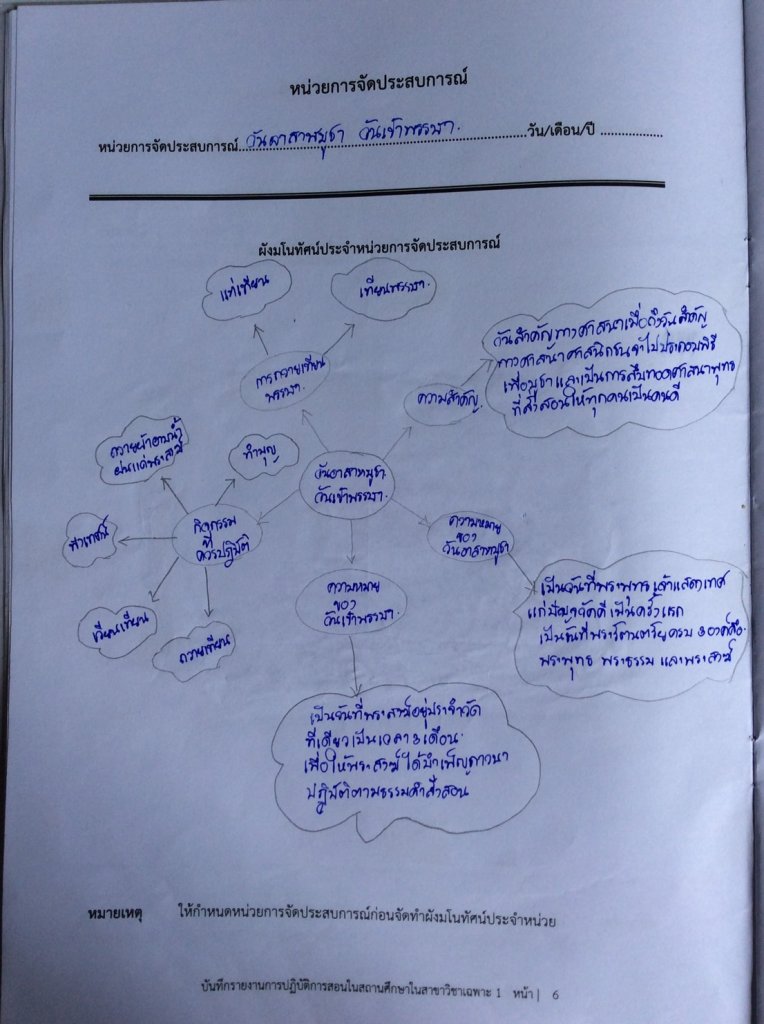 หน่วยการจัดประสบการณ์
หน่วยการจัดประสบการณ์ วันอาสาฬหบูชา วันเข้าพรรษา. วัน/เดือน/ปี ................
ผังมโนทัศน์ประจำหน่วยการจัดประสบการณ์
แห่เทียน
เทียนพรรษา.
การถวายเทียน
พรรษา.
ความสำคัญ.
วันสำคัญทางศาสนาเมื่อถึงวันสำคัญ
ทางศาสนาศาสนิกชนจะไปประกอบพิธี
เพื่อบูชา และเป็นการสืบทอดศาสนาพุทธ
ที่สั่งสอนให้ทุกคนเป็นคนดี
ถวายผ้าอาบน้ำ
ฝนแด่พระสงฆ์
ทำบุญ
วันอาสาฬหบูชา
วันเข้าพรรษา.
กิจกรรม
ที่
ควรปฏิบัติ
ฟังเทศน์
เวียนเทียน
ถวายเทียน
ความหมาย
ของ
วันอาสาฬหบูชา
เป็นวันที่พระพุทธเจ้าแสดงเทศ
แก่ปัญจวัคคีเป็นครั้งแรก
เป็นวันที่พระรัตนตรัยครบ 3 องค์คือ
พระพุทธ พระธรรม และพระสงฆ์
ความหมาย
ของ
วันเข้าพรรษา.
เป็นวันที่พระสงฆ์อยู่ประจำวัด
ที่เดียวเป็นเวลา 3 เดือน.
เพื่อให้พระสงฆ์ได้บำเพ็ญภาวนา
ปฏิบัติตามธรรมคำสั่งสอน
หมายเหตุ ให้กำหนดหน่วยการจัดประสบการณ์ก่อนจัดทำผังมโนทัศน์ประจำหน่วย
บันทึกรายงานการปฏิบัติการสอนในสถานศึกษาในสาขาวิชาเฉพาะ 1 หน้า | 6